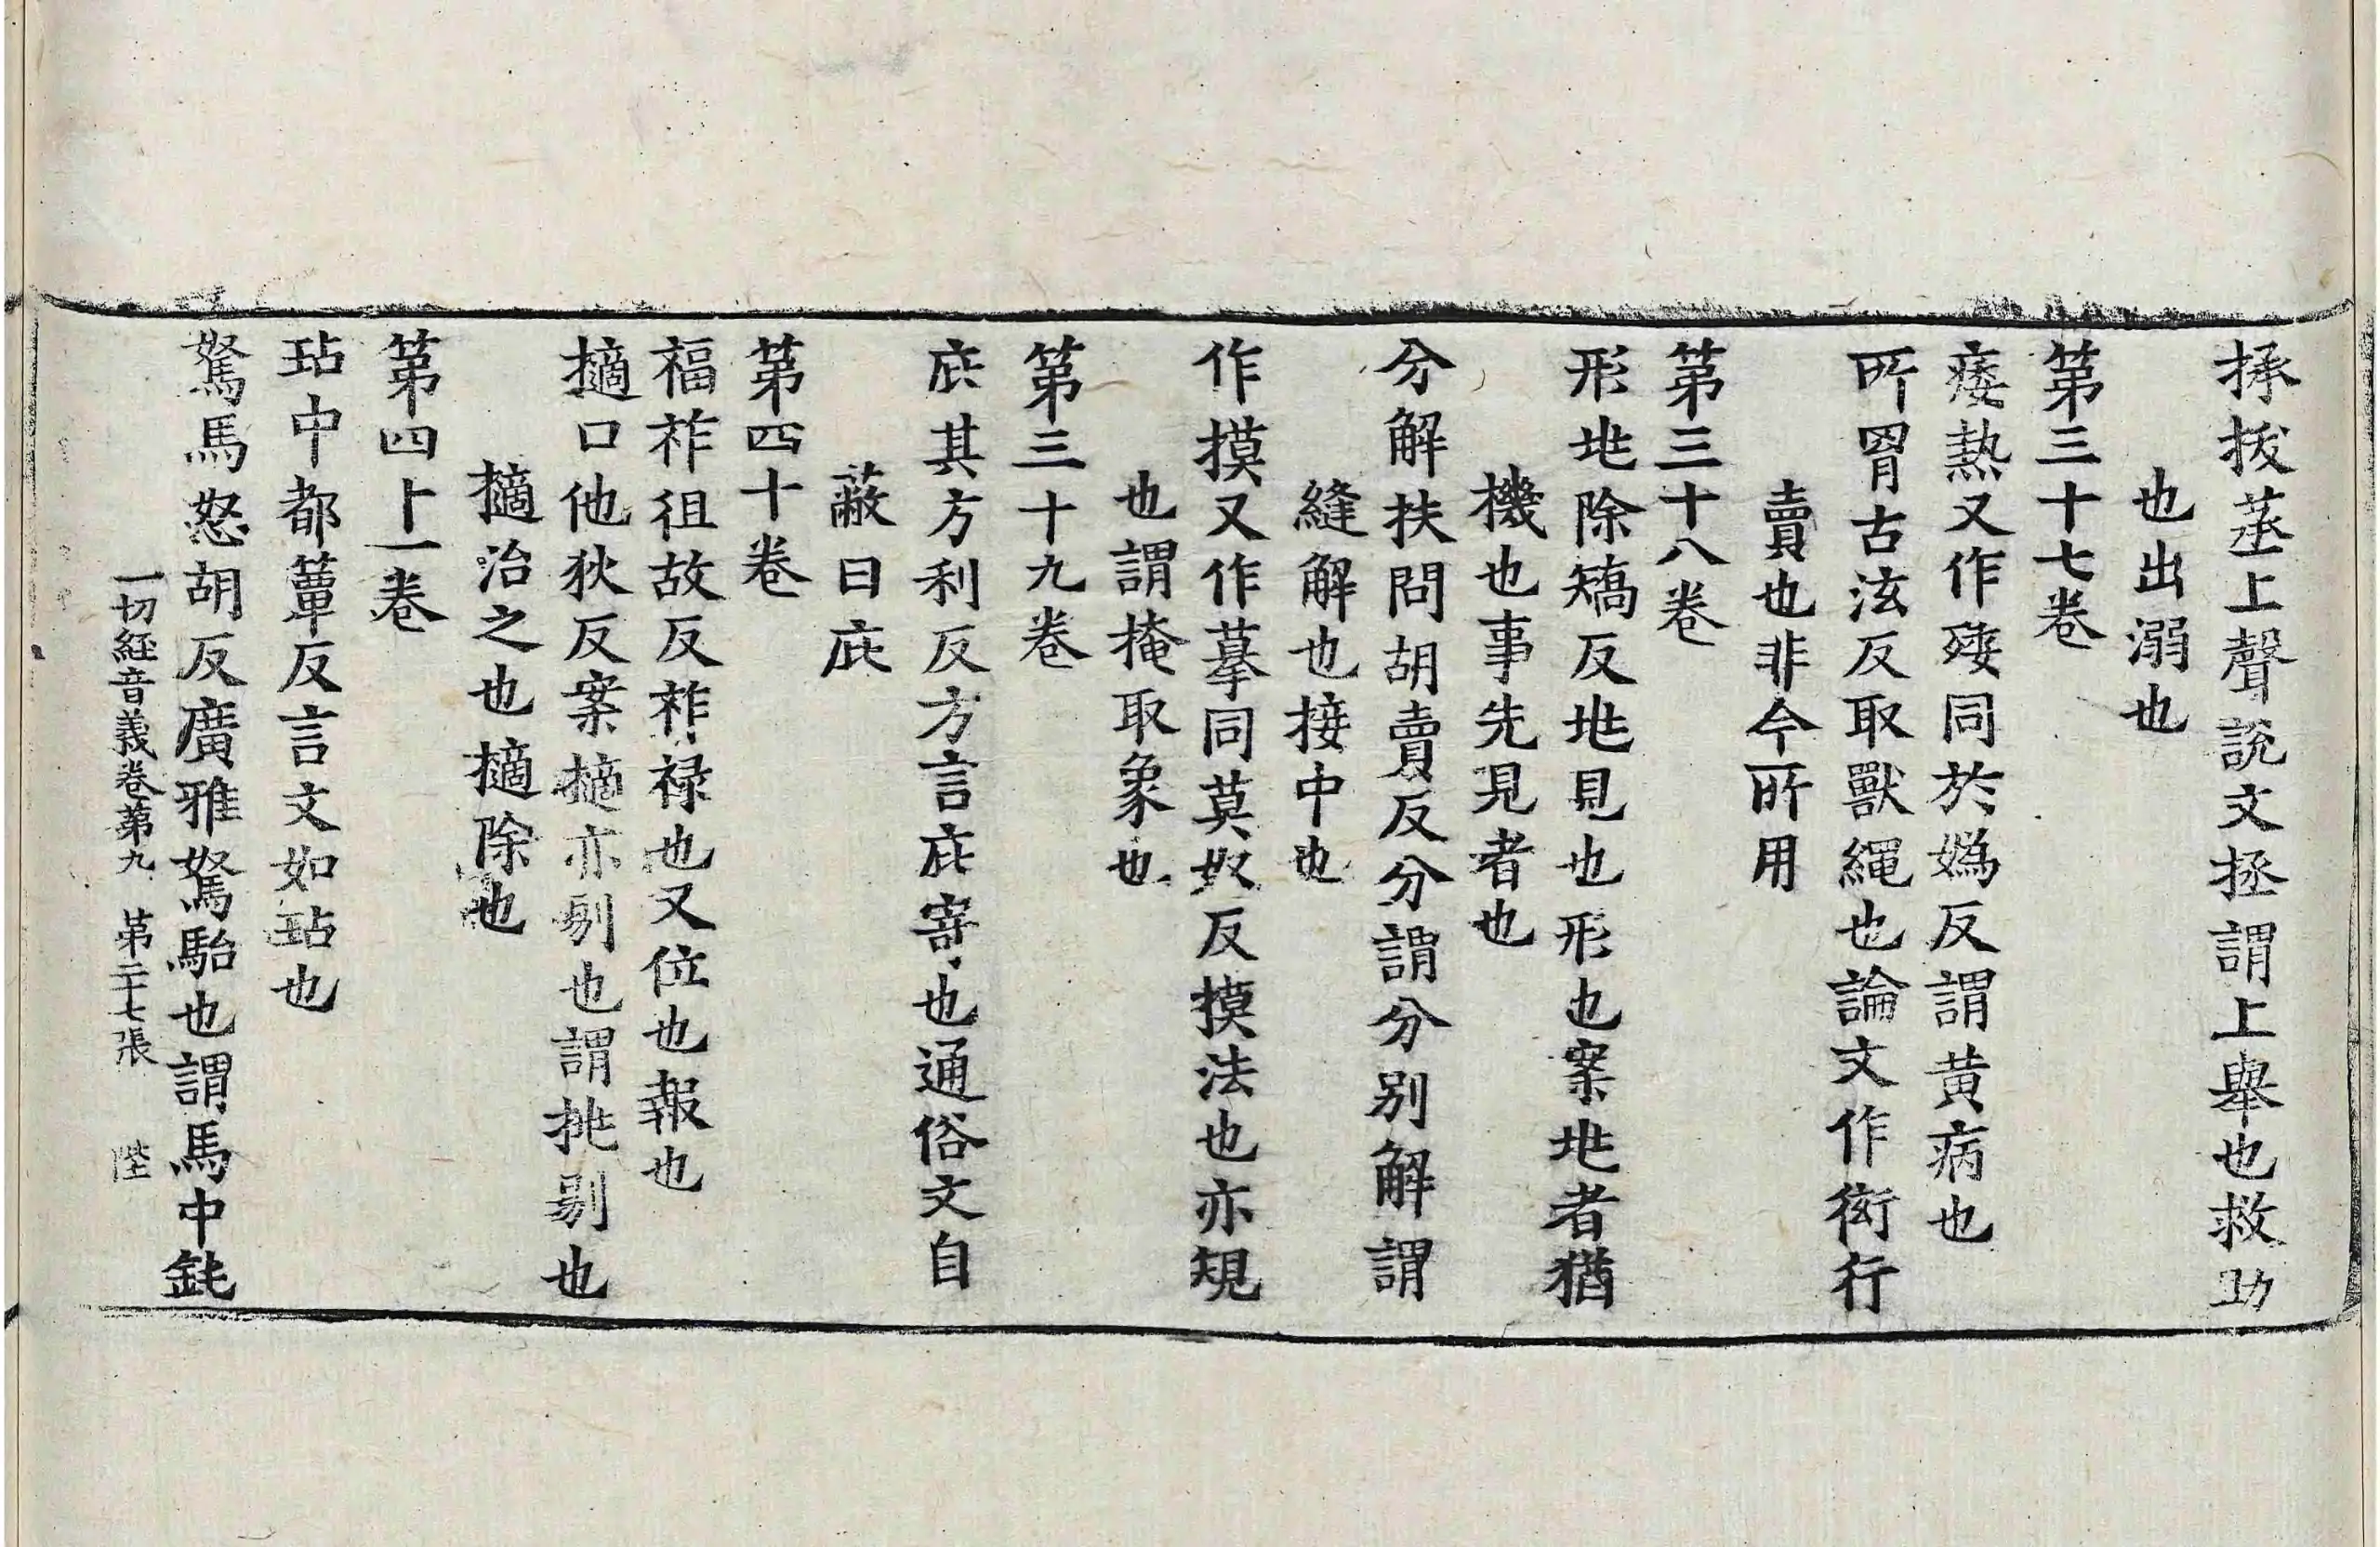 拯拔蒸上聲說文拯謂上舉也救助
也出溺也
第三十七卷
痿熱又作㾯同於嬀反謂黄病也
所罥古泫反取獸繩也論文作衒行
賣也非今所用
第三十八卷
形𠧞除矯反𠧞見也形也案𠧞者猶
機也事先見者也
分解扶問胡賣反分謂分别解謂
縫解也接中也
作摸又作摹同莫奴反摸法也亦規
也謂掩取象也
第三十九卷
庇其方利反方言庇寄也通俗文自
蔽曰庇
第四十卷
福祚徂故反祚禄也又位也報也
擿口他狄反案擿亦剔也謂挑剔也
擿治之也擿除也
第四十一卷
玷中都簟反言文如玷也
駑馬怒胡反廣雅駑駘也謂馬中鈍
一切經音義卷第九 第二十七張 陛